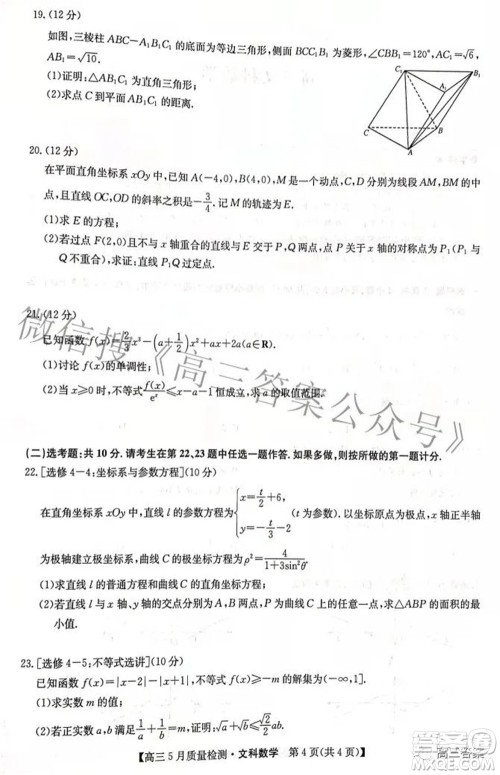 19.(12分)
如图,三棱柱 ABC-A₁B₁C₁ 的底面为等边三角形,侧面 BCC₁B₁ 为菱形,∠CBB₁=120°,AC₁=√6,
AB₁=√10.
(1)证明:△ABC₁ 为直角三角形;
(2)求点 C 到平面 ABC₁ 的距离.
C₁
B₁
A₁
C
B
A
20.(12分)
在平面直角坐标系 xOy 中,已知 A(-4,0),M(4,0),C,D 分别为线段 AP,MP 的中点,O 为坐标
原点,直线 OC,OD 的斜率之积为-3/4. 记 M 的轨迹为 E.
(1)求 E 的方程;
(2)若过点 F(2,0)且不与 x 轴重合的直线与 E 交于 P,Q 两点,点 P 关于 x 轴的对称点为 P₁(P₁ 与
Q 不重合),求证:直线 P₁Q 过定点.
21.(12分)
已知函数 f(x)=2/3x³-(a+1/2)x²+ax+2a(a∈R).
(1)讨论 f(x)的单调性;
(2)当 x≥0 时,不等式 f(x)/eˣ≤ 恒成立,求 a 的取值范围.
微信搜《高三答案公众号》
(二)选考题:共 10 分. 请考生在第 22、23 题中任选一题作答. 如果多做,则按所做的第一题计分.
22.[选修 4-4:坐标系与参数方程](10分)
在直角坐标系 xOy 中,直线 l 的参数方程为{x=t/2+6, y=-t/3-2 (t 为参数). 以坐标原点为极点,x 轴正半轴
为极轴建立极坐标系,曲线 C 的极坐标方程为 ρ²=4/(1+3sin²θ).
(1)求直线 l 的普通方程和曲线 C 的直角坐标方程;
(2)设 A,B 为直线 l 上不同的两点,且|AB|=4,P 是曲线 C 上的任意一点,求△ABP 面积的最
小值.
23.[选修 4-5:不等式选讲](10分)
已知函数 f(x)=|x-2|-|x+3|,不等式 f(x)≥-m 的解集为(-∞,1].
(1)求实数 m 的值;
高三 5 月质量检测·文科数学 第 4 页(共 4 页)
高三答案